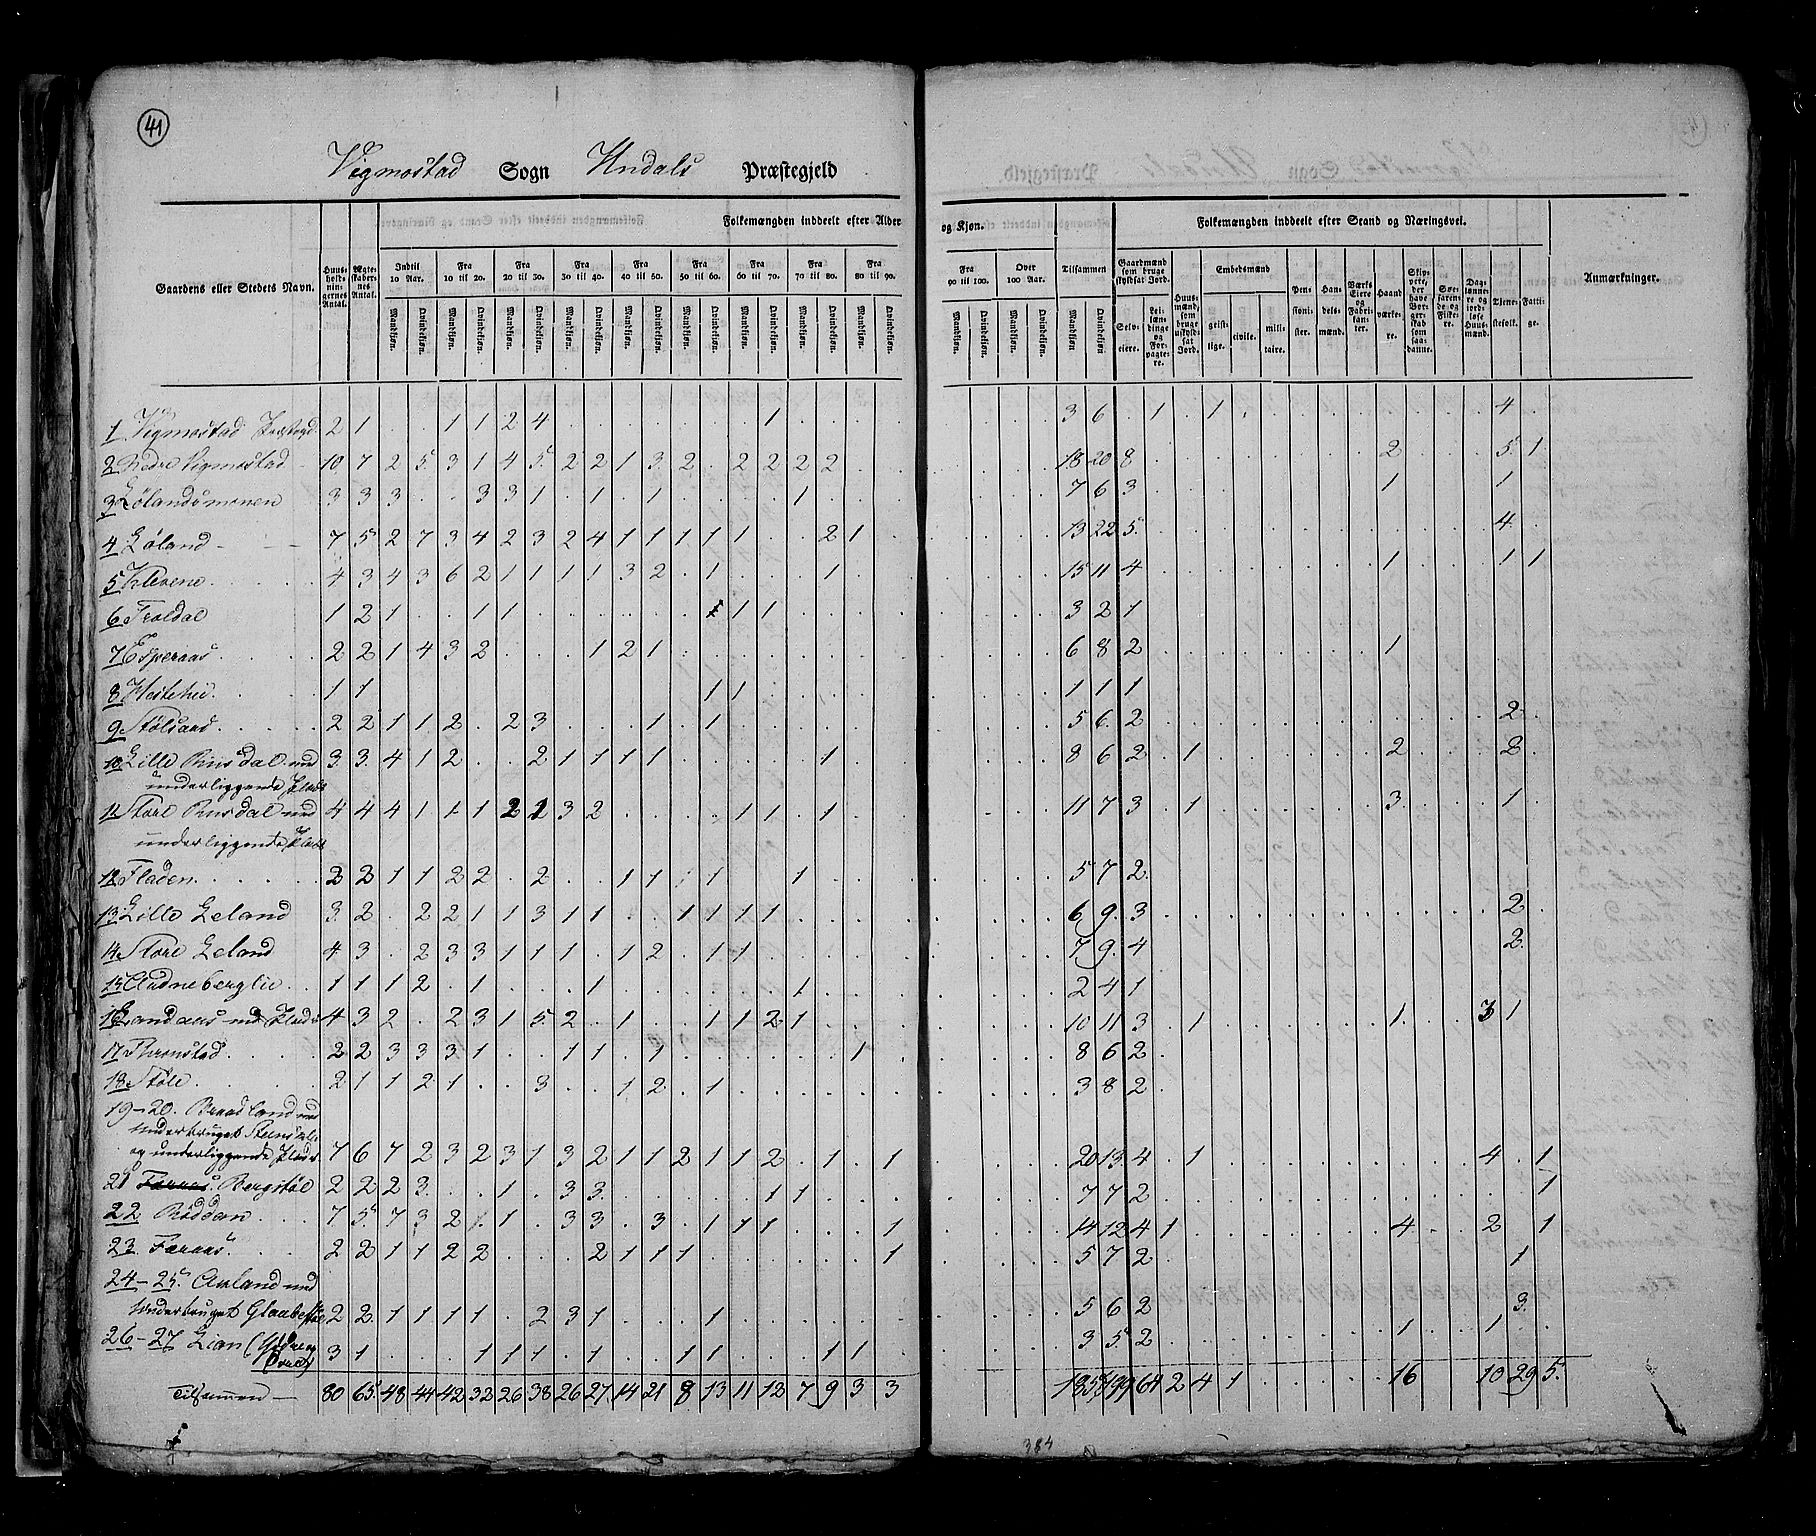 41
Vigmostad Sogn Undals Præstegjeld
Folkemængden inddeelt efter Alder og Kjøn. Folkemængden inddeelt efter Stand og Næringsvei.
Gaardens eller Stedets Navn. Huusholdningernes Antal. Ægteskabernes Antal. Indtil 10 Aar. Fra 10 til 20. Fra 20 til 30. Fra 30 til 40. Fra 40 til 50. Fra 50 til 60. Fra 60 til 70. Fra 70 til 80. Fra 80 til 90. Fra 90 til 100. Over 100 Aar. Tilsammen Gaardmænd som bruge skyldsat Jord. Embedsmænd Anmærkninger.
Mandkjøn. Qvindekjøn.
Selveiere. Leilændinge og Forpagtere. Huusmænd, som bruge uskyldsat Jord. geistlige. civile. militaire. Pensionister. Handelsmænd. Værks Eiere og Fabrikanter. Haandværkere. Skippere, der have Borgerskab som saadanne. Søefarende og Fiskere. Daglønnere og jordløse Huusmænd. Tjenestefolk. Fattige.
1 Vigmostad Præstegd. 2 1 . . 1 1 2 4 . . . . . . . 1 . . . . 3 6 . 1 . 1 4
2 Nedre Vigmostad 10 7 2 5 3 1 4 5 2 2 1 3 2 . 2 2 2 2 18 20 8 2 5 1
3 Lølandsmonen 3 3 3 . . 3 3 1 . 1 . 1 . . . . 1 7 6 3 1 1
4 Løland 7 5 2 7 3 4 2 3 2 4 1 1 1 1 1 . . 2 1 13 22 5 4
5 Klevene 4 3 4 3 6 2 1 1 1 1 3 2 . 1 . . . 1 15 11 4 1 1 1
6 Troldal 1 2 1 . . 1 1 . . . . . . 1 1 1 3 2 1
7 Esperaas 2 2 1 4 3 2 . . . 1 2 1 6 8 2 1
8 Hestehei 1 1 1 1 1 1 1
9 Stølsaas 2 2 1 1 2 . 2 3 . . . 1 . 1 5 6 2 2
10 Lille Ruisdal med 3 3 4 1 2 . . 2 1 1 1 1 . . . . . 1 8 6 2 . 1 2 2
underliggende Plads
11 Store Ruisdal med 4 4 4 1 1 1 2 1 3 2 . . . . 1 1 . 1 11 7 3 . 1 3 1
underliggende Plads
12 Fladen 2 2 1 1 2 2 . 2 . . 1 1 . 1 . . 1 5 7 2
13 Lille Leland 3 2 . 2 2 1 1 3 1 1 . . 1 1 1 1 6 9 3 2
14 Store Leland 4 3 . 2 3 3 1 1 1 . 1 2 . 1 1 7 9 4 2
15 Audneberglie 1 1 1 2 . 1 . . . 1 . . . . . . 1 2 4 1
16 Landaas med Plads 4 3 2 . 2 3 1 5 2 . 1 . . 1 1 2 1 10 11 3 . 1 1 3 1
17 Thronstad 2 2 3 3 3 1 . . 1 1 . 1 . . . . . . 1 8 6 2
18 Støle 2 1 1 2 1 . . 3 . . 1 2 . 1 3 8 2
19-20. Braadland med
underbruget
og underliggende Plads 7 6 7 2 3 2 3 1 3 2 1 1 2 1 1 2 . 1 . 1 20 13 4 . 1 4 . 1
21 Bergstøl 2 2 2 3 . . 1 . 3 3 . . . . . 1 1 7 7 2 1
22 Rødden 7 5 7 3 2 1 1 . 3 3 . 3 . 1 1 1 . . . 1 14 12 4 1 4 2 . 1
23 Færaas 2 2 1 1 2 2 . . . 2 1 1 1 . . . . . . 1 5 7 2 1
24-25. Auland med
underbruget 2 2 1 1 1 1 . 2 3 1 . . . 1 5 6 2 3
26-27 Lian (Ydre og
Øvre) 3 1 . . . 1 1 1 . 1 . . 1 1 . . . 1 1 3 5 2 1 1
Tilsammen 80 65 48 44 42 32 26 38 26 27 14 21 8 13 11 12 7 9 3 3 185 199 64 2 4 1 16 10 29 5
384